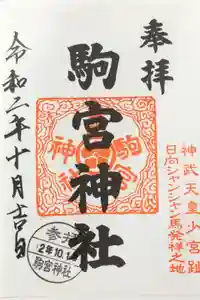 奉拝
神武天皇少宮趾
日向シャンシャン馬発祥之地
駒宮神社
駒宮神社
令和二年十月吉日
参拝
2年10.1
駒宮神社